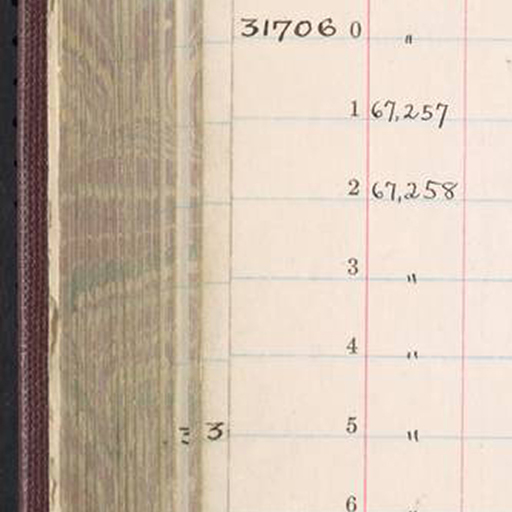 31706 0 "
1 67,257
2 67,258
3 "
4 "
3 5 "
6 "